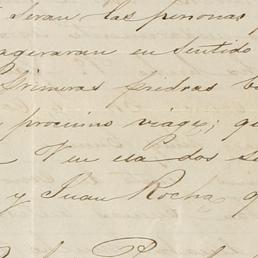 seran las personas
ageraran en sentido
Primeras piedras
procsimo viage; qu
Ven cia dos se
y Juan Rocha q